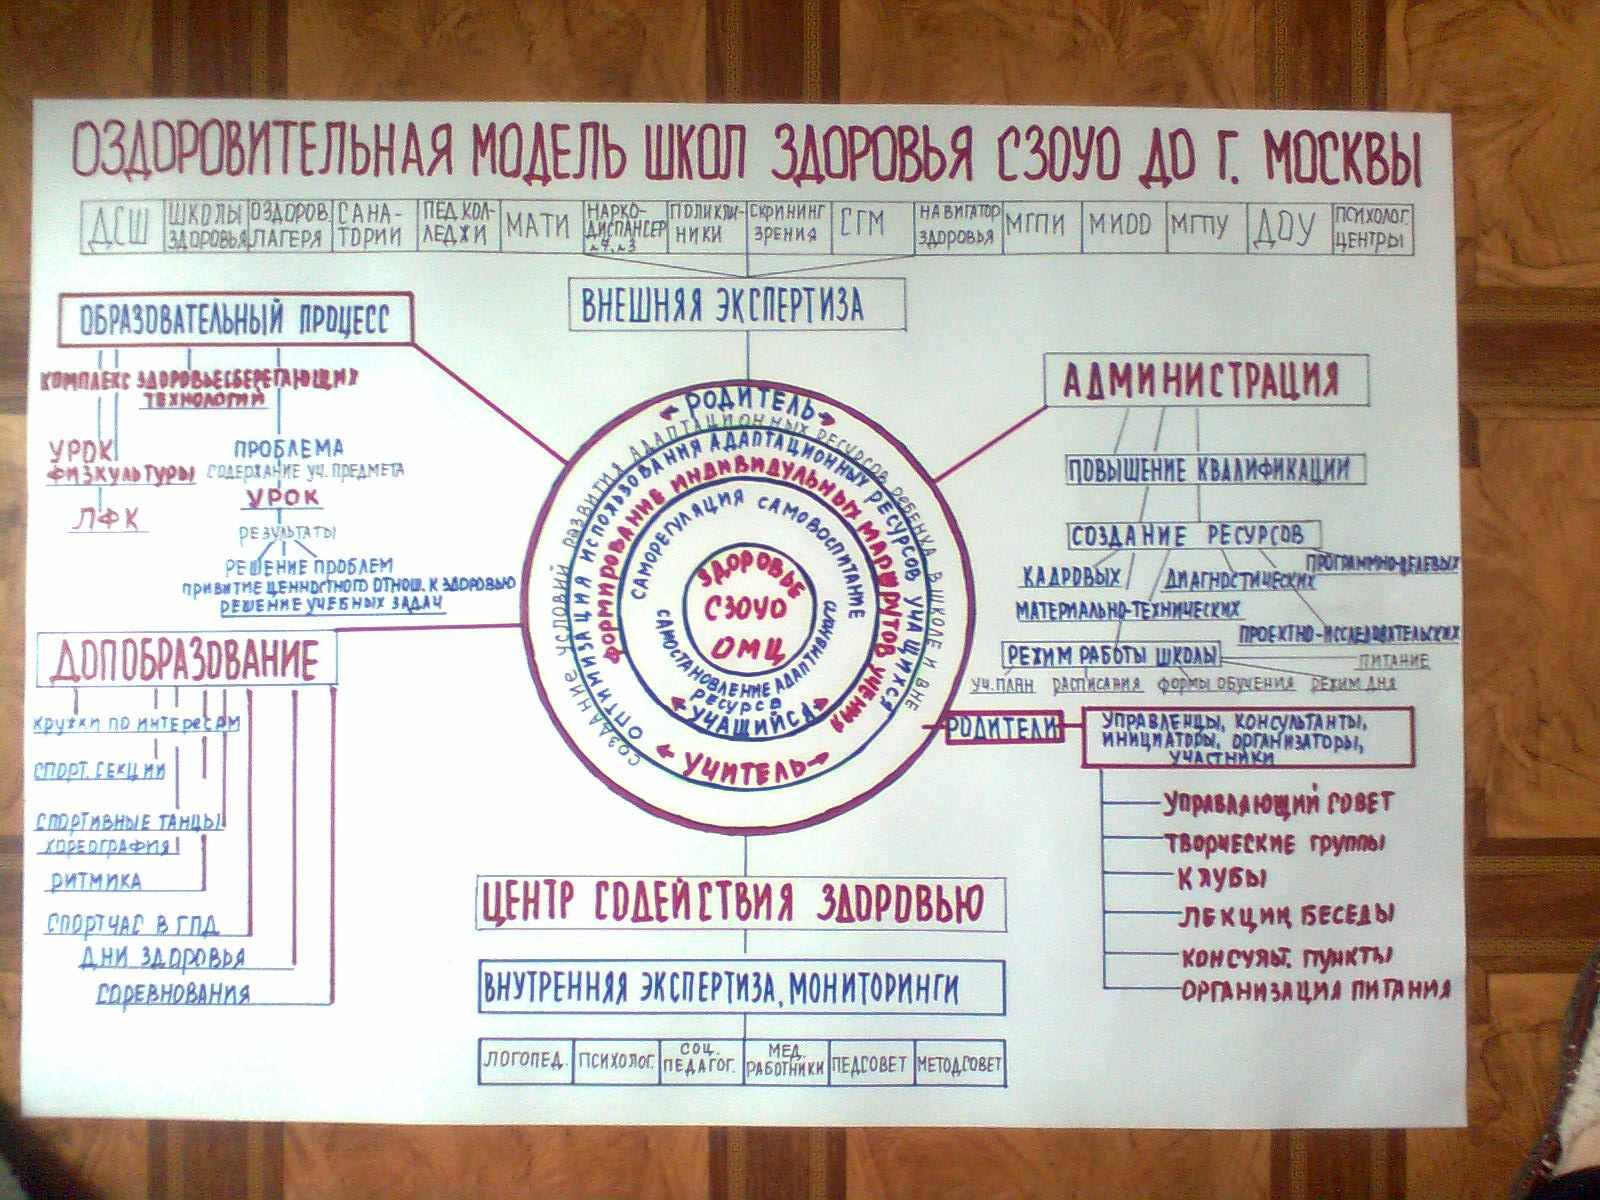 ОЗДОРОВИТЕЛЬНАЯ МОДЕЛЬ ШКОЛ ЗДОРОВЬЯ СЗОУО ДО Г. МОСКВЫ
ДСШ
ШКОЛЫ
ЗДОРОВЬЯ
ОЗДОРОВ.
ЛАГЕРЯ
САНА-
ТОРИИ
ПЕД.КОЛ-
ЛЕДЖИ
МАТИ
НАРКО-
ДИСПАНСЕР
ПОЛИКЛИ-
НИКИ
СКРИНИНГ
ЗРЕНИЯ
СГМ
НАВИГАТОР
ЗДОРОВЬЯ
МГПИ
МИОО
МГПУ
ДОУ
ПСИХОЛОГ.
ЦЕНТРЫ
ВНЕШНЯЯ ЭКСПЕРТИЗА
ОБРАЗОВАТЕЛЬНЫЙ ПРОЦЕСС
КОМПЛЕКС ЗДОРОВЬЕСБЕРЕГАЮЩИХ
ТЕХНОЛОГИЙ
УРОК
ФИЗКУЛЬТУРЫ
ЛФК
ПРОБЛЕМА
СОДЕРЖАНИЕ УЧ. ПРЕДМЕТА
УРОК
РЕЗУЛЬТАТЫ
РЕШЕНИЕ ПРОБЛЕМ
ПРИВИТИЕ ЦЕННОСТНОГО ОТНОШ. К ЗДОРОВЬЮ
РЕШЕНИЕ УЧЕБНЫХ ЗАДАЧ
ДОПОБРАЗОВАНИЕ
КРУЖКИ ПО ИНТЕРЕСАМ
СПОРТ. СЕКЦИИ
СПОРТИВНЫЕ ТАНЦЫ
ХОРЕОГРАФИЯ
РИТМИКА
СПОРТЧАС В ГПД
ДНИ ЗДОРОВЬЯ
СОРЕВНОВАНИЯ
РОДИТЕЛЬ
СОЗДАНИЕ УСЛОВИЙ РАЗВИТИЯ АДАПТАЦИОННЫХ РЕСУРСОВ РЕБЕНКА В ШКОЛЕ И ВНЕ
ОПТИМИЗАЦИЯ ИСПОЛЬЗОВАНИЯ АДАПТАЦИОННЫХ РЕСУРСОВ УЧАЩИХСЯ
ФОРМИРОВАНИЕ ИНДИВИДУЛЬНЫХ МАРШРУТОВ УЧЕНИЯ
САМОРЕГУЛЯЦИЯ САМОВОСПИТАНИЕ
САМОСТАНОВЛЕНИЕ АДАПТИВНОГО
РЕСУРСВ
ЗДОРОВЬЕ
СЗОУО
ОМЦ
УЧАЩИЙСЯ
УЧИТЕЛЬ
АДМИНИСТРАЦИЯ
ПОВЫШЕНИЕ КВАЛИФИКАЦИИ
СОЗДАНИЕ РЕСУРСОВ
ПРОГРАММНО-ЦЕЛЕВЫХ
КАДРОВЫХ
ДИАГНОСТИЧЕСКИХ
МАТЕРИАЛЬНО-ТЕХНИЧЕСКИХ
ПРОЕКТНО-ИССЛЕДОВАТЕЛЬСКИХ
РЕЖИМ РАБОТЫ ШКОЛЫ
ПИТАНИЕ
УЧ.ПЛАН РАСПИСАНИЯ ФОРМЫ ОБУЧЕНИЯ РЕЖИМ ДНЯ
РОДИТЕЛИ
УПРАВЛЕНЦЫ, КОНСУЛЬТАНТЫ,
ИНИЦИАТОРЫ, ОРГАНИЗАТОРЫ,
УЧАСТНИКИ
УПРАВЛЯЮЩИЙ СОВЕТ
ТВОРЧЕСКИЕ ГРУППЫ
КЛУБЫ
ЛЕКЦИИ, БЕСЕДЫ
КОНСУЛЬТ. ПУНКТЫ
ОРГАНИЗАЦИЯ ПИТАНИЯ
ЦЕНТР СОДЕЙСТВИЯ ЗДОРОВЬЮ
ВНУТРЕННЯЯ ЭКСПЕРТИЗА, МОНИТОРИНГИ
ЛОГОПЕД.
ПСИХОЛОГ.
СОЦ.
ПЕДАГОГ.
МЕД.
РАБОТНИКИ
ПЕДСОВЕТ
МЕТОДСОВЕТ